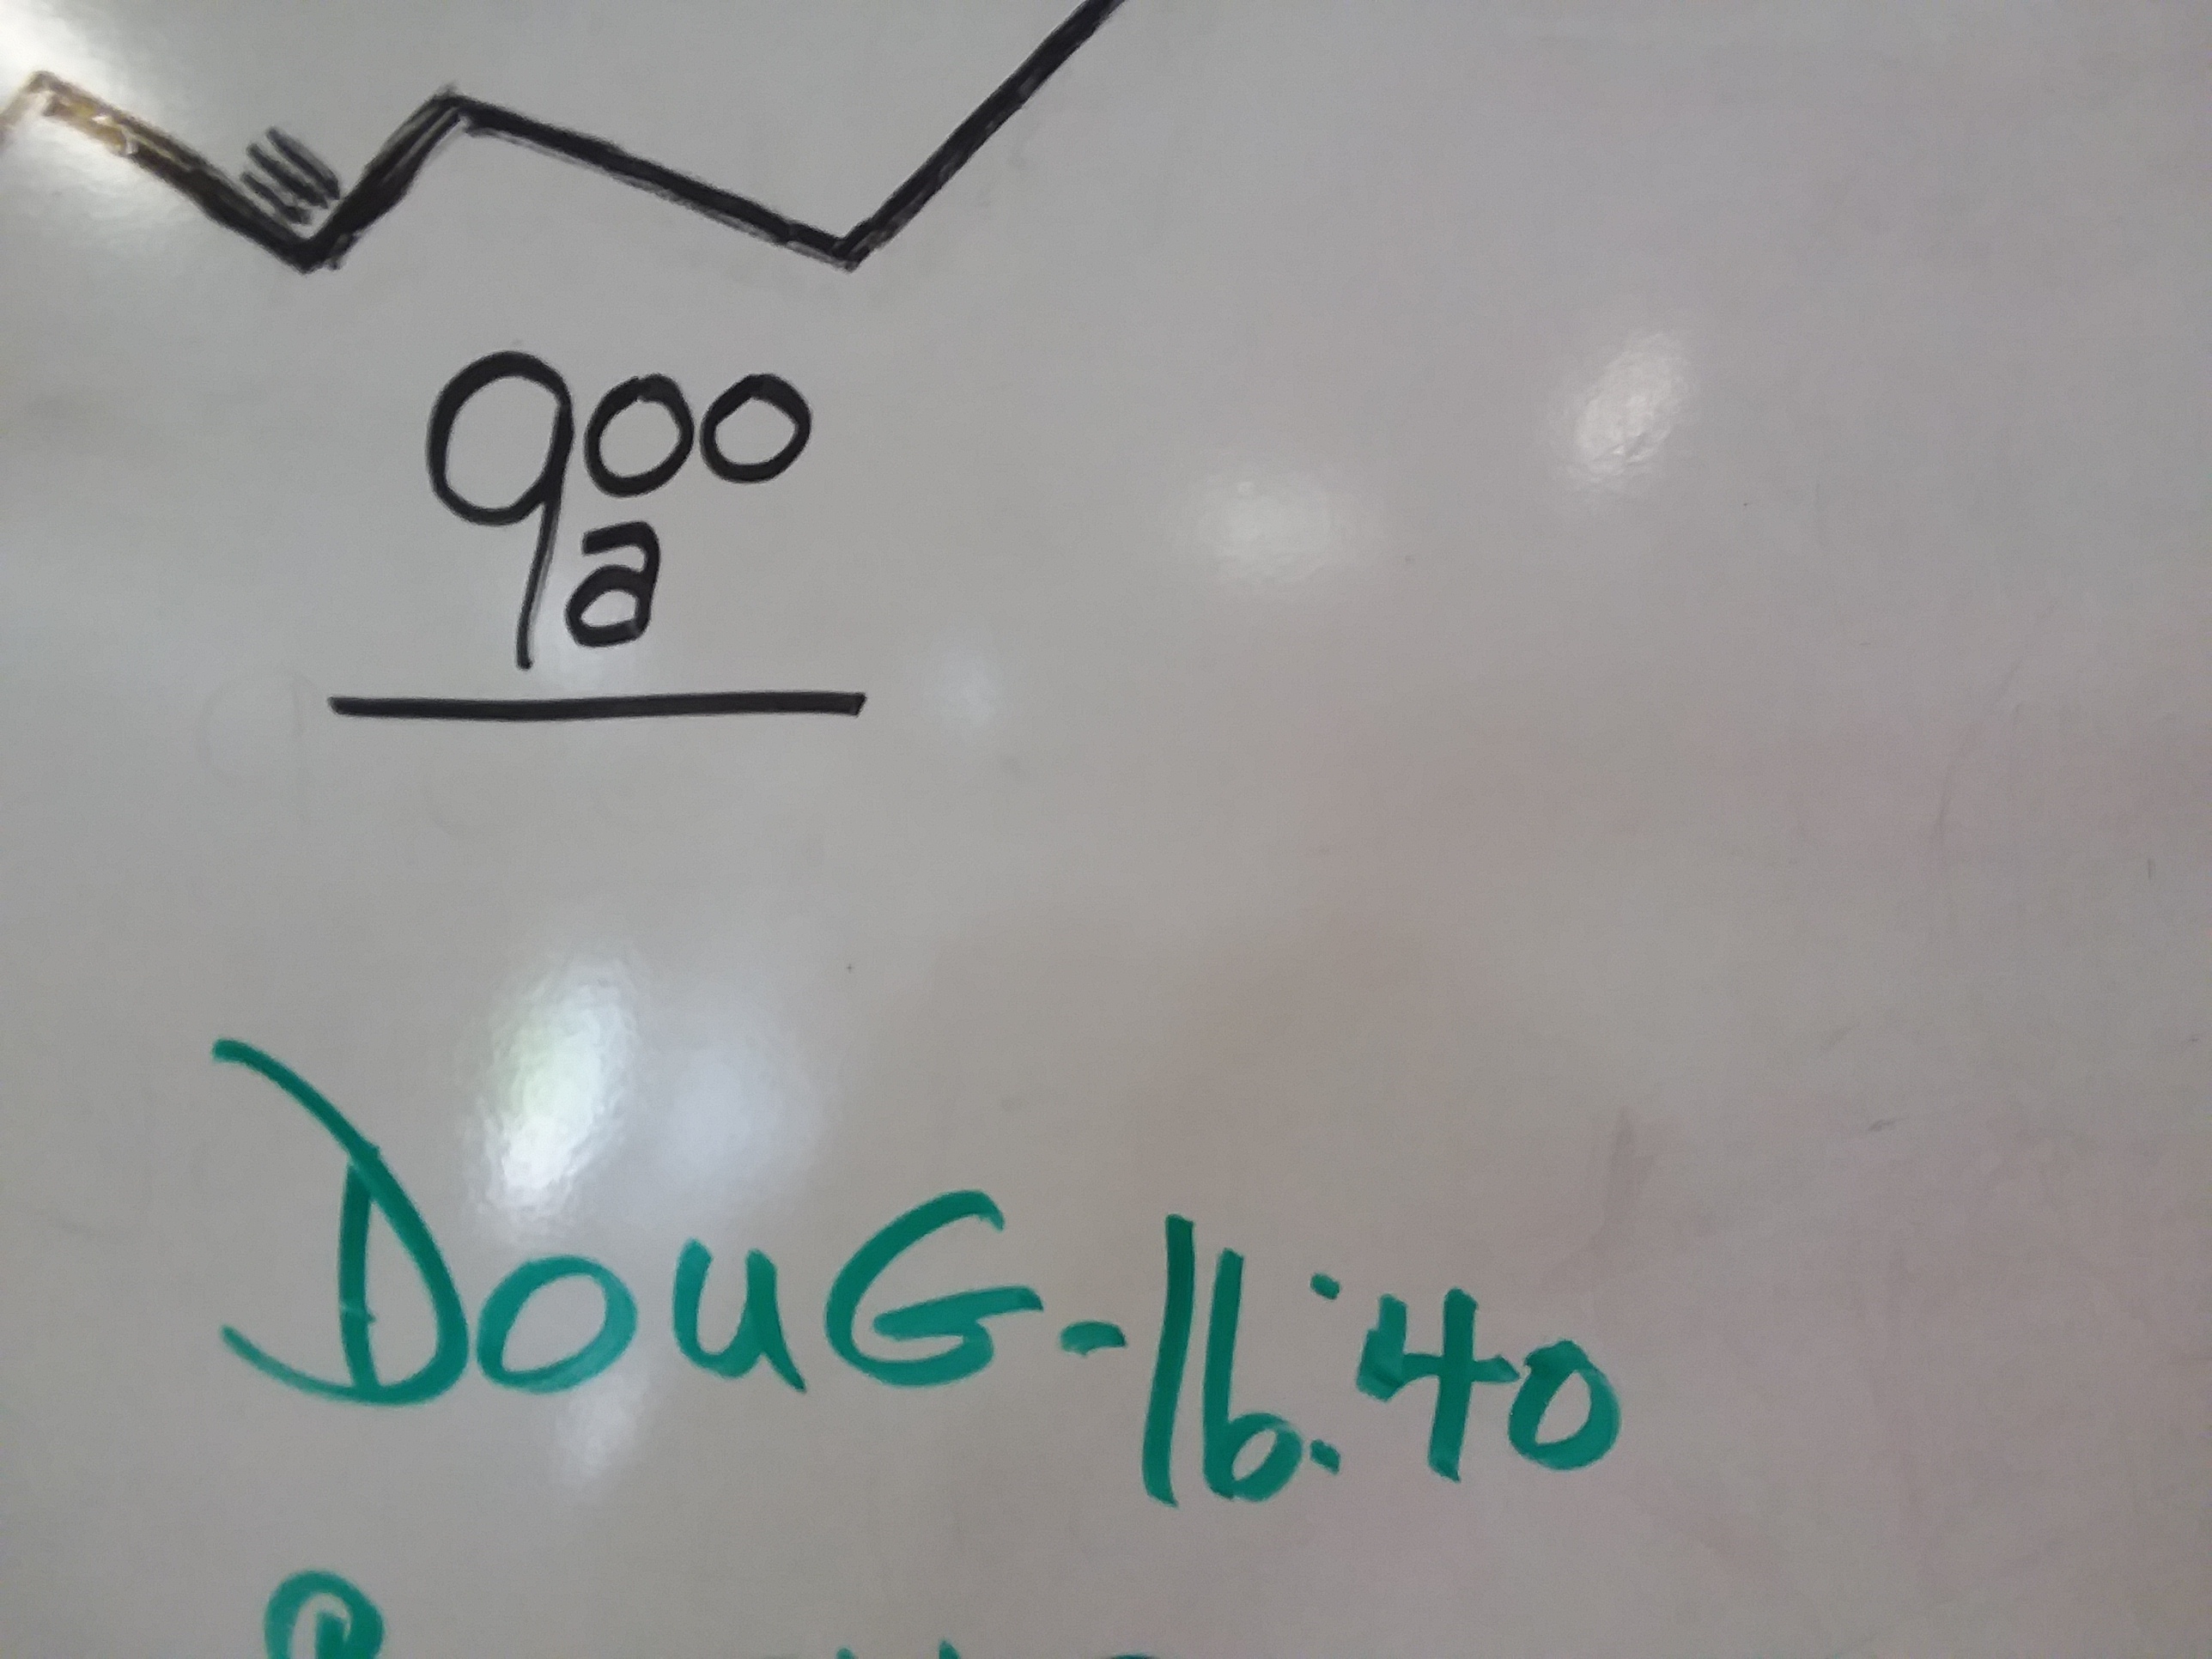 900
a
DOUG-16:40